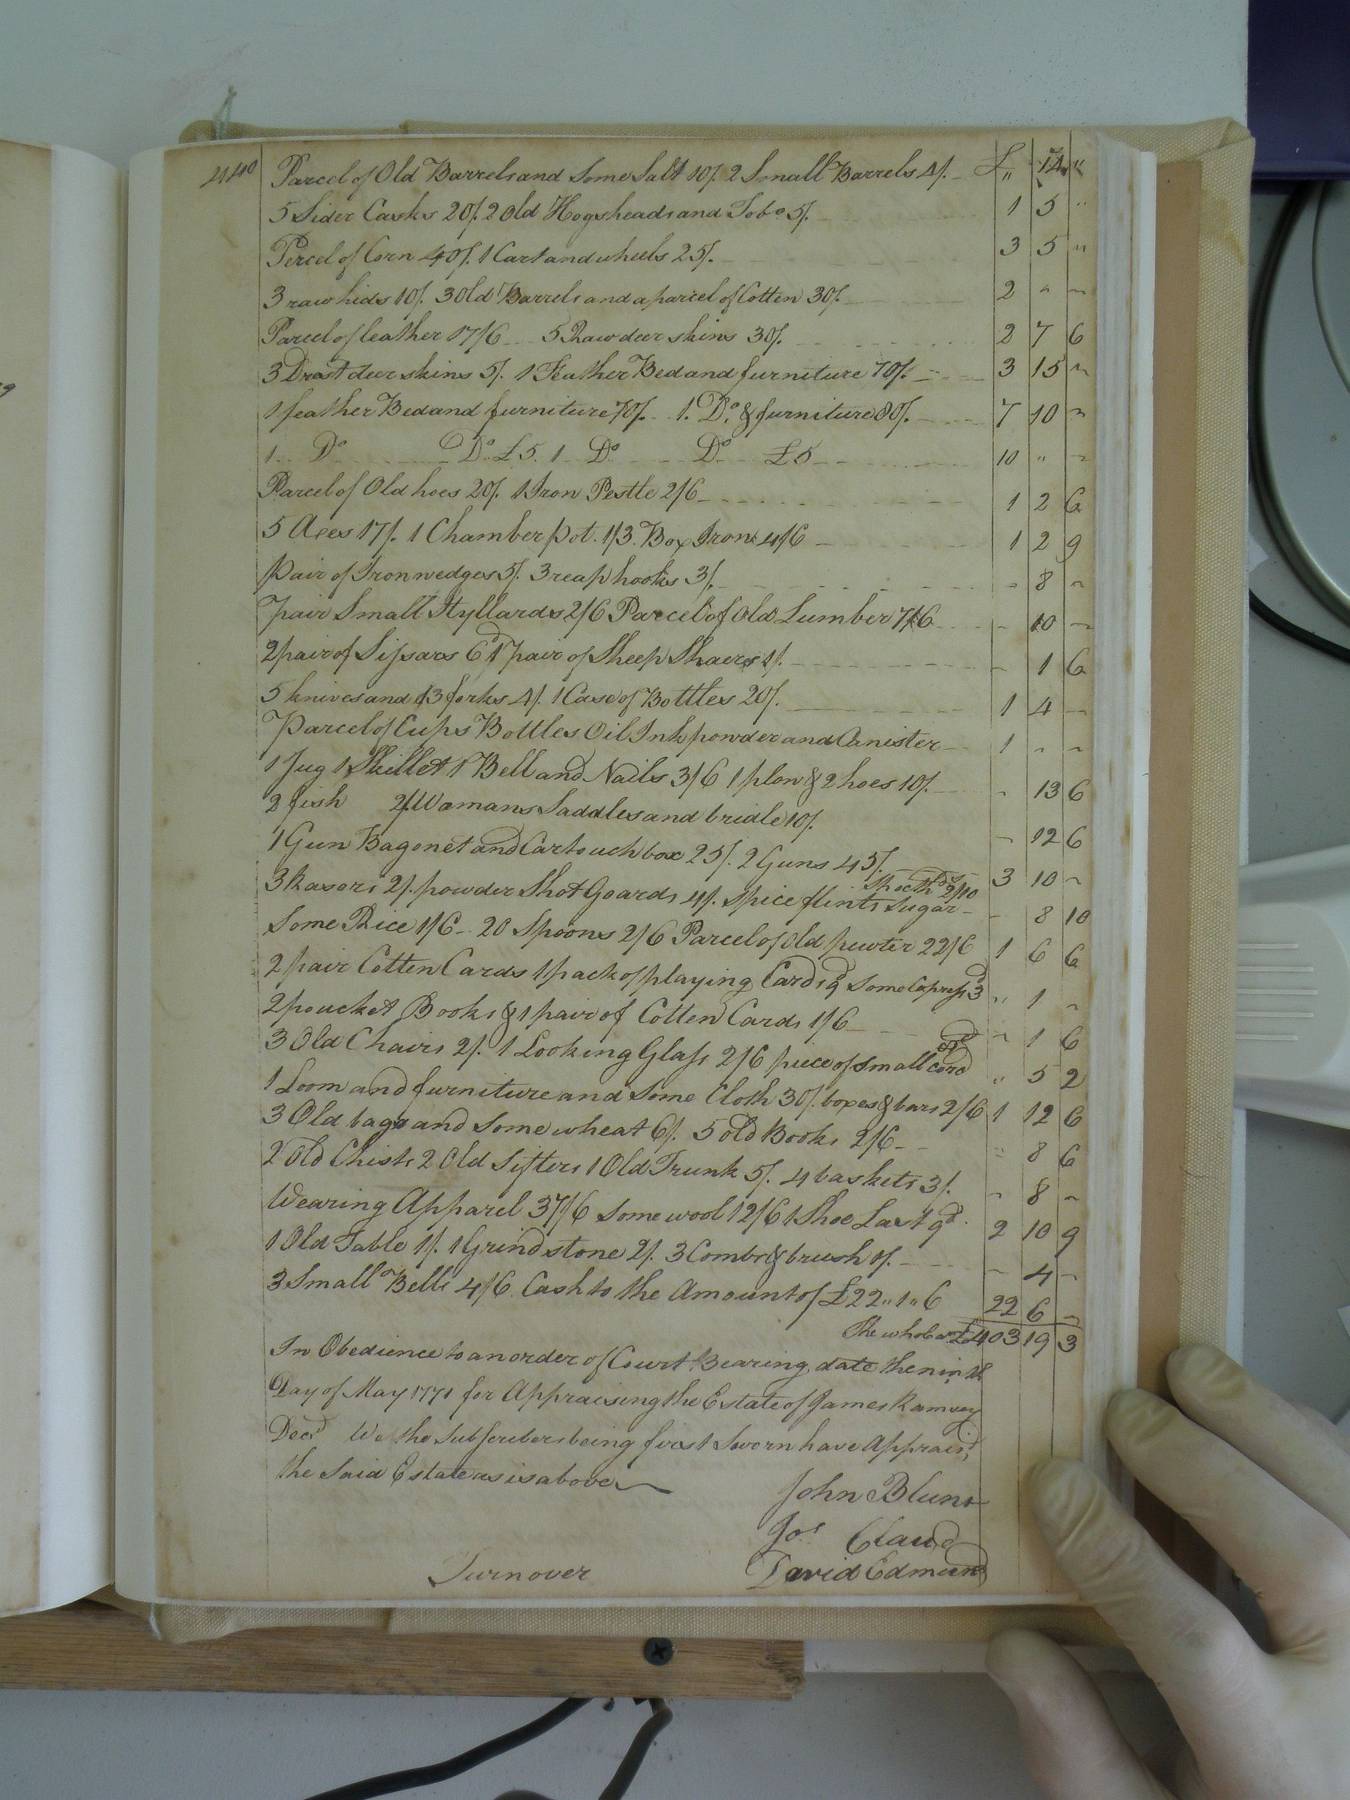 440 Parcel of Old Barrels and Some Salt 10/. 2 Small Barrels 4/. £ " 14 "
5 Sider Casks 20/. 2 Old Hogsheads and Tobo 5/. 1 5 "
Percel of Corn 40/. 1 Cart and wheels 25/. 3 5 "
3 raw hids 10/. 3 Old Barrels and a parcel of Cotten 30/. 2 " "
Parcel of leather 17/6 5 Raw deer skins 30/. 2 7 6
3 Drast deer skins 5/. 1 Feather Bed and furniture 70/. 3 15 "
1 feather Bed and furniture 70/. 1. Do. & furniture 80/. 7 10 "
1 Do Do £5. 1 Do Do £5 10 " "
Parcel of Old hoes 20/. 1 Iron Pestle 2/6 1 2 6
5 Axes 17/. 1 Chamber pot. 1/3. Box Irons 4/6 1 2 9
pair of Iron wedges 5/. 3 reap hooks 3/. " 8 "
1 pair Small Styllards 2/6 Parcel of Old Lumber 7/6 " 10 "
2 pair of Sissars 6d 1 pair of Sheep Shaers 1/. " 1 6
5 knives and 13 forks 4/. 1 Case of Bottles 20/. 1 4 "
Parcel of Cups Bottles Oil Ink powder and Canister 1 " "
1 Jug 1 Skillet 1 Bell and Nails 3/6 1 plow & 2 hoes 10/. " 13 6
2 fish 2/ Womans Saddles and bridle 10/. " 12 6
1 Gun Bagonet and Cartouch box 25/. 2 Guns 45/. 3 10 "
3 Rasors 2/. powder Shot Goards 4/. Spice flints Sugar 2/10 " 8 10
Some Rice 1/6 20 Spoons 2/6 Parcel of Old pewter 22/6 1 6 6
2 pair Cotten Cards 1 pack of playing Cards 9d Some 3d " 1 "
2 poucket Books & 1 pair of Cotten Cards 1/6 " 1 6
3 Old Chairs 2/. 1 Looking Glass 2/6 piece of small cord " 5 2
1 Loom and furniture and Some Cloth 30/. boxes & bars 2/6 1 12 6
3 Old bags and Some wheat 6/. 5 old Books 2/6 " 8 6
2 Old Chists 2 Old Sifters 1 Old Trunk 5/. 4 baskets 3/. " 8 "
Wearing Apparel 37/6 Some wool 12/6 1 Shoe Last 9d. 2 10 9
1 Old Table 1/. 1 Grindstone 2/. 3 Combs & brush 1/. " 4 "
3 Small Bells 4/6 Cash to the Amount of £22 " 1 " 6 22 6 "
The whole amt £403 19 3
In Obedience to an order of Court Bearing date the ninth
Day of May 1771 for Appraising the Estate of James Ramsey
Decd We the Subscribers being first Sworn have Appraisd
the Said Estate as is above
John Blunt
Jos Claud
David Edmund
Turnover